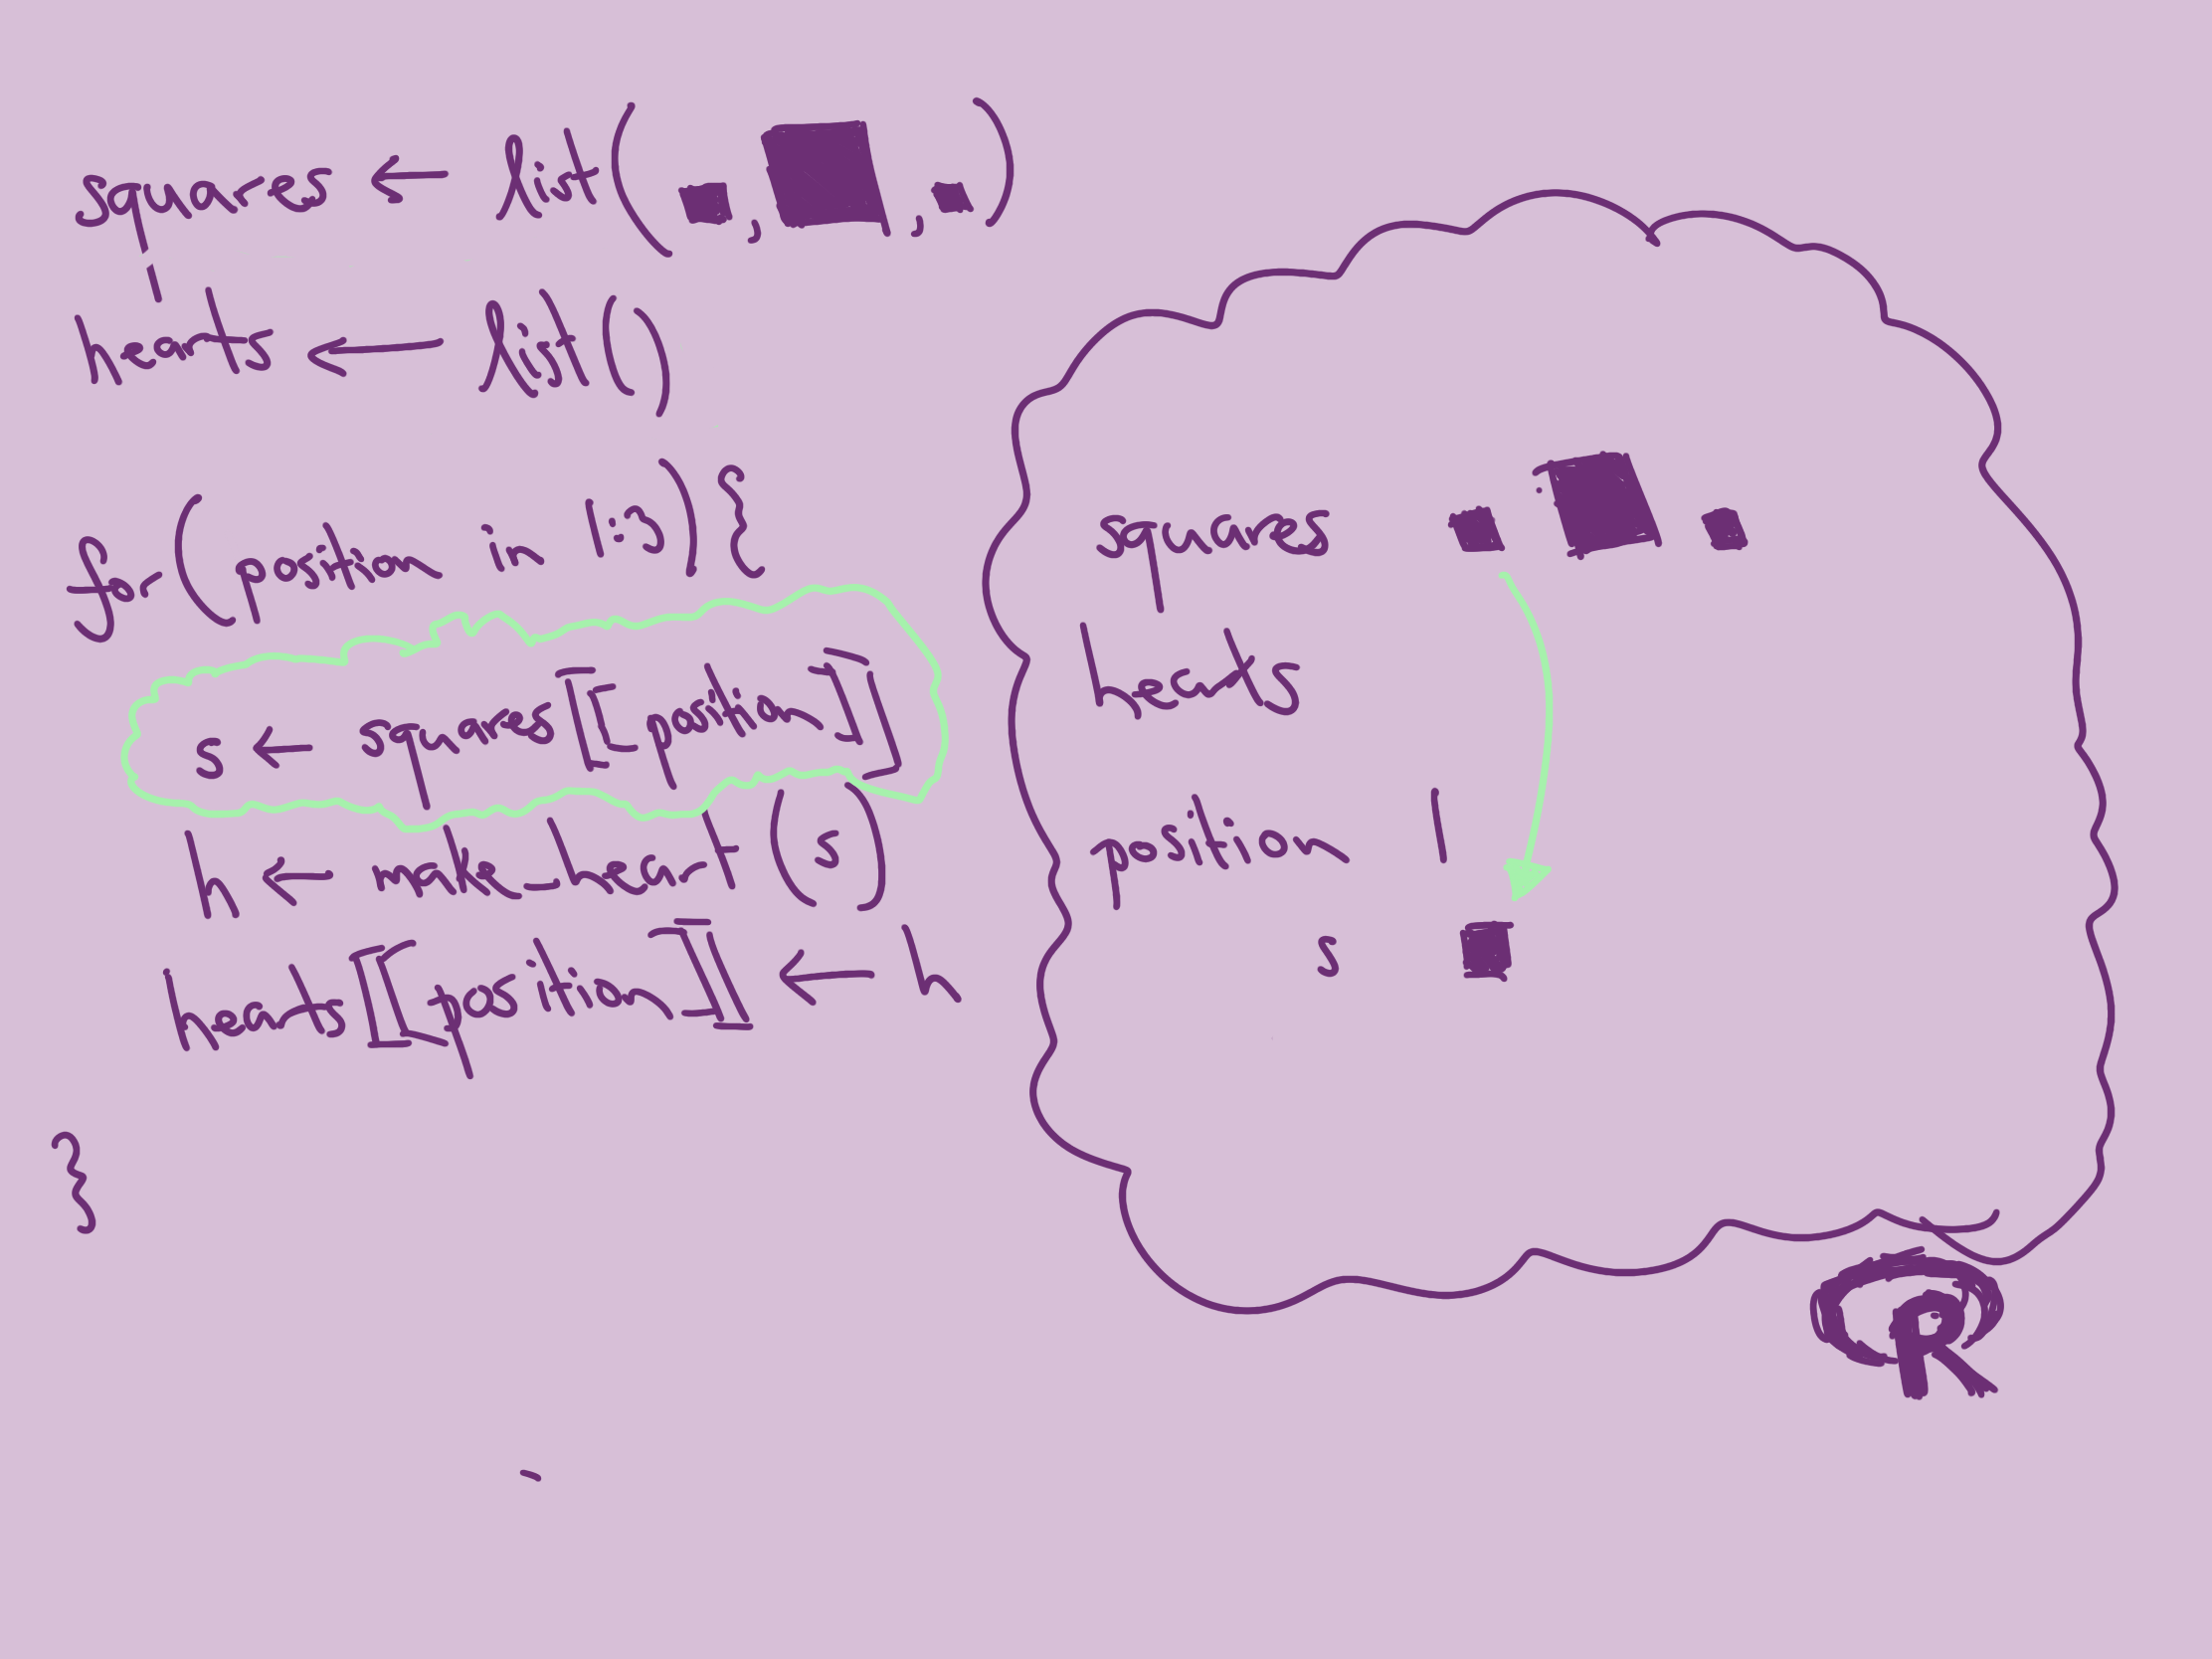 squares ← list(■, ■, ■)
hearts ← list()
for (position in 1:3) {
s ← squares[[position]]
h ← make_heart(s)
hearts[[position]] ← h
}
squares ■ ■ ■
hearts
position 1
s ■
R